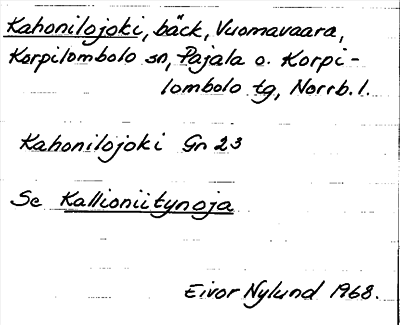 Kahonilojoki, bäck, Vuomavaara,
Korpilombolo sn, Pajala o. Korpi-
lombolo tg, Norrb. l.
Kahonilojoki Gn 23
Se Kallioniitynoja
Eivor Nylund 1968.